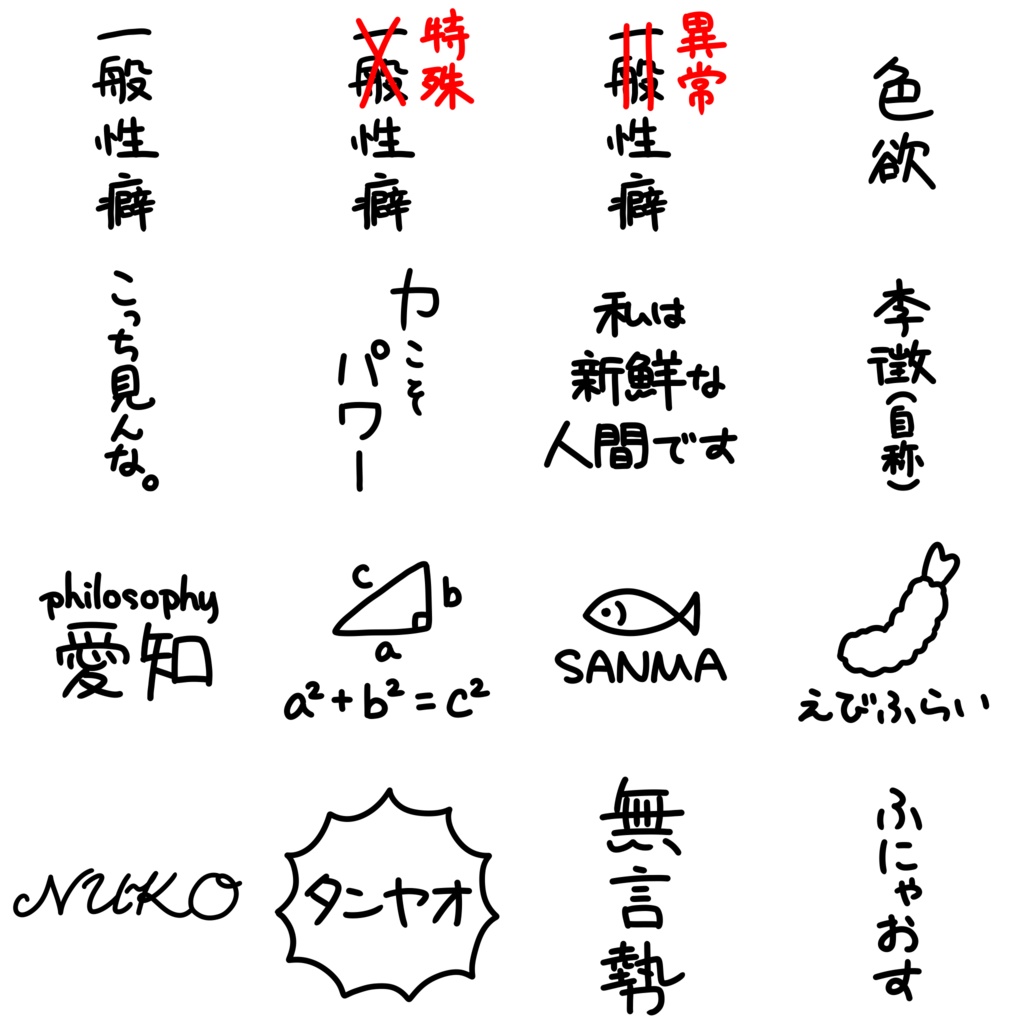 一般性癖
一般性癖
特殊
一般性癖
異常
色欲
こっち見んな。
力こそ
パワー
私は
新鮮な
人間です
李徴(自称)
philosophy
愛知
c
b
a
a²+b²=c²
SANMA
えびふらい
NUKO
タンヤオ
無言勢
ふにゃおす